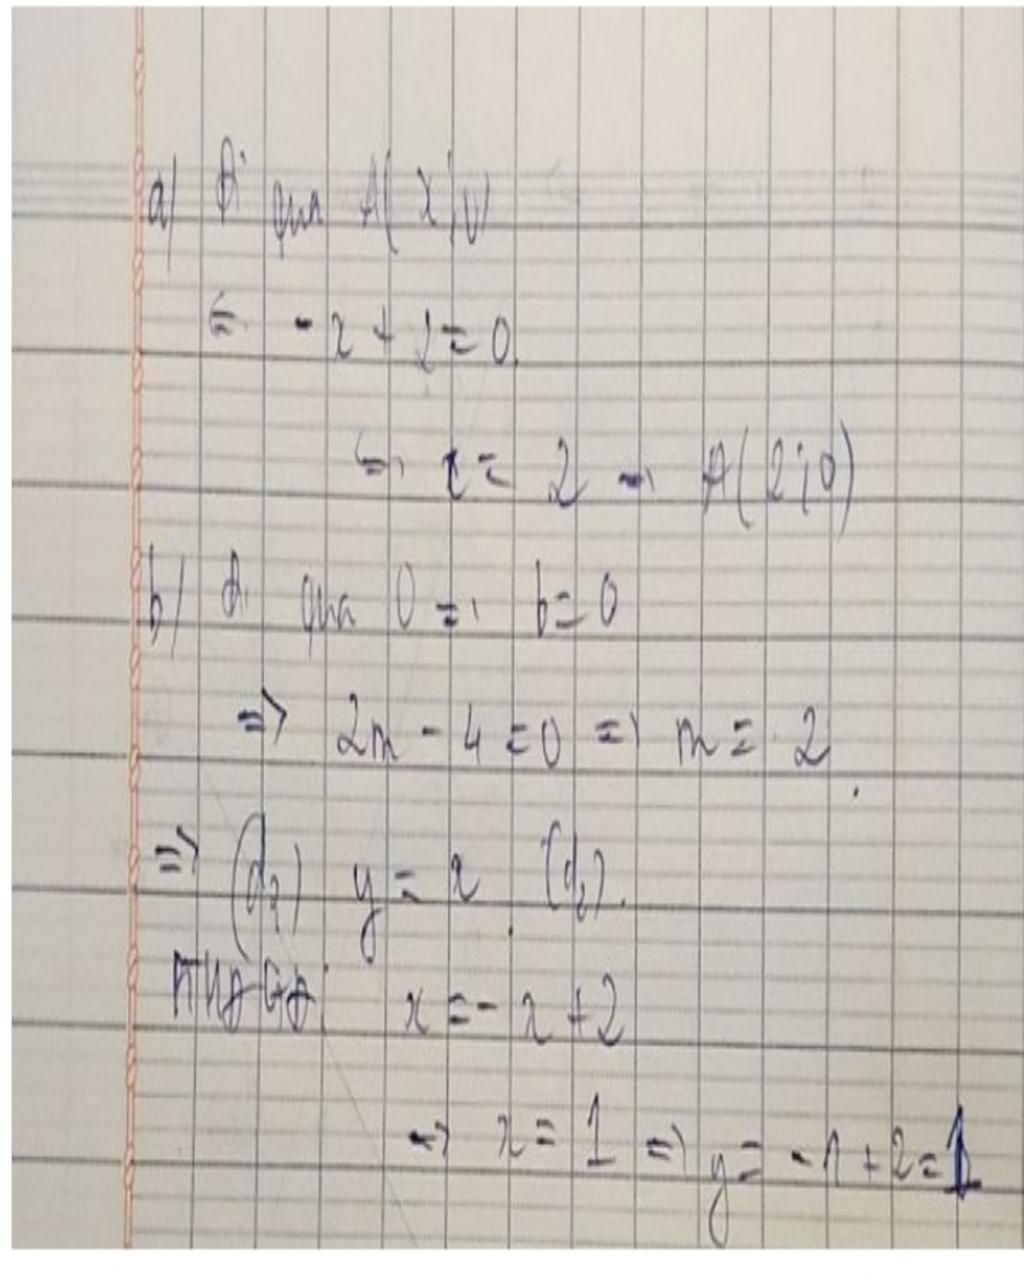 a) Đ' qua A( x; 0)
⇔ - x + 2 = 0
⇔ x = 2 → A(2;0)
b) Đ. qua O => b = 0
=> 2m - 4 = 0 => m = 2.
=> (d₂) y = x (d₂).
PTHĐGĐ: x = - x + 2
=> x = 1 => y = -1 + 2 = 1